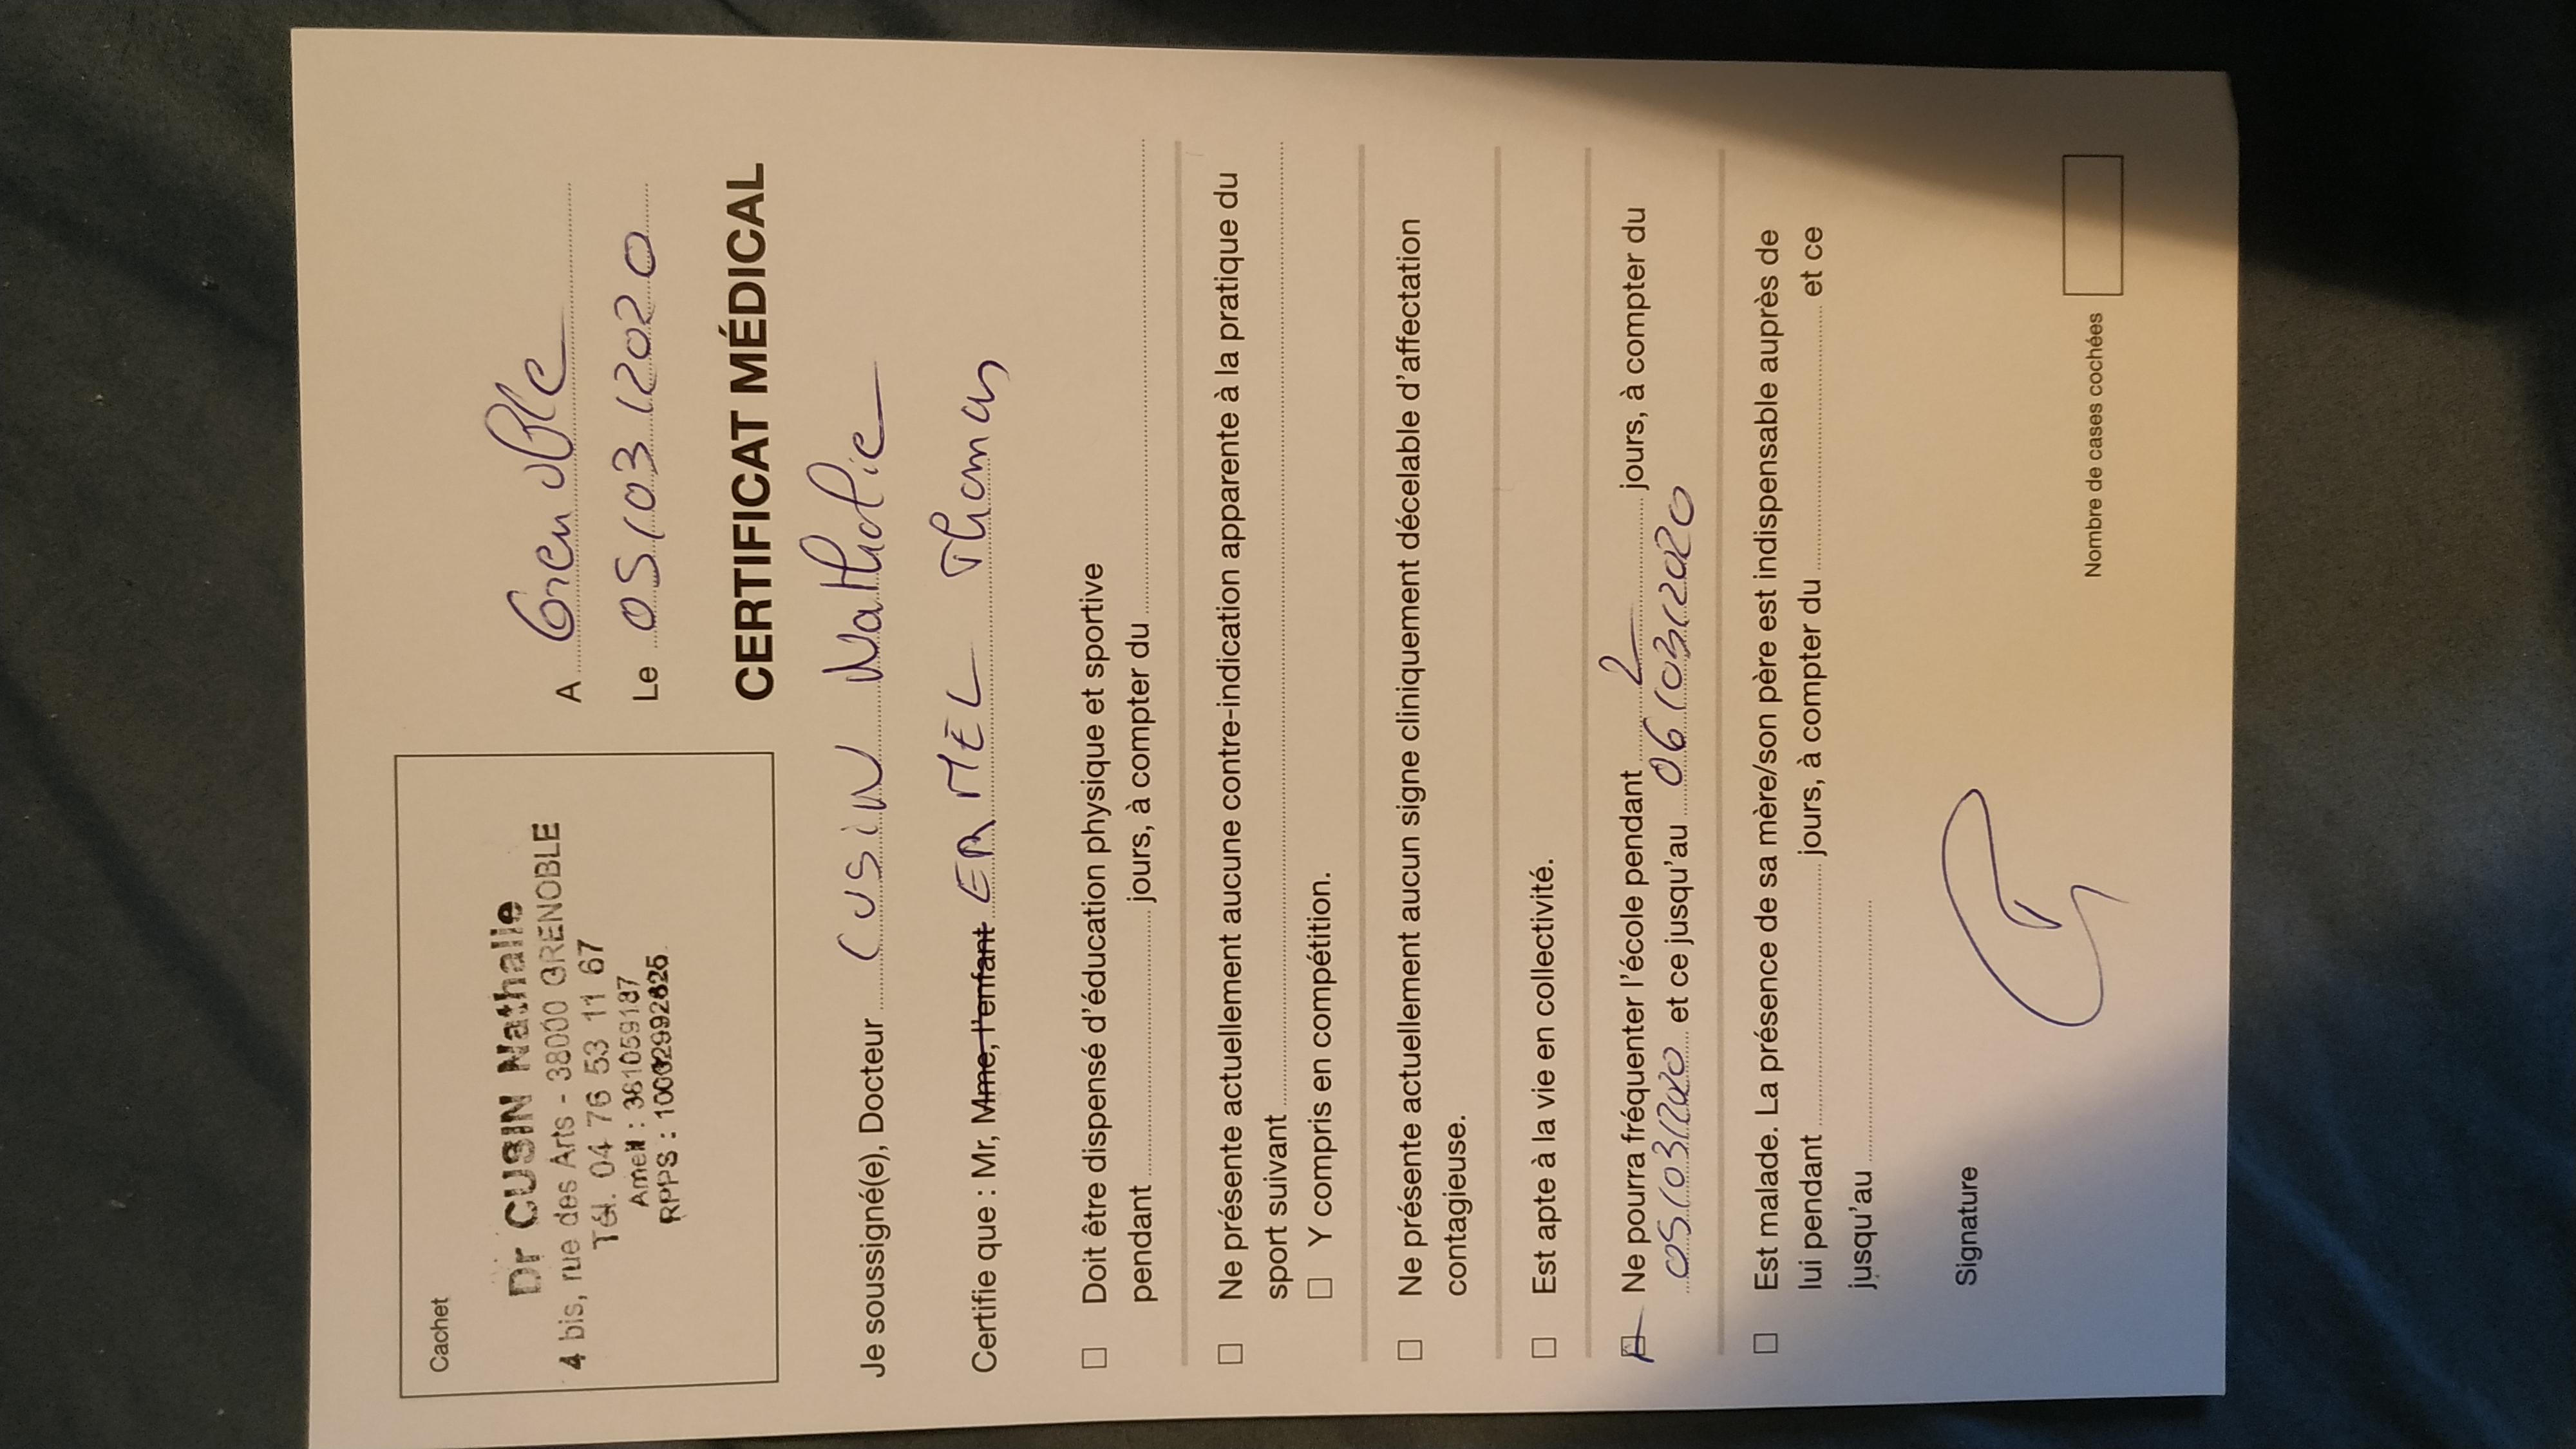 Cachet
Dr CUSIN Nathalie
4 bis, rue des Arts - 38000 GRENOBLE
Tél. 04 76 53 11 67
Ameli : 381059187
RPPS : 10002992625
A Grenoble
Le 05/03/2020
CERTIFICAT MÉDICAL
Je soussigné(e), Docteur CUSIN Nathalie
Certifie que : Mr, Mme, l'enfant ERMEL Thomas
Doit être dispensé d'éducation physique et sportive
pendant jours, à compter du
Ne présente actuellement aucune contre-indication apparente à la pratique du
sport suivant
Y compris en compétition.
Ne présente actuellement aucun signe cliniquement décelable d'affectation
contagieuse.
Est apte à la vie en collectivité.
Ne pourra fréquenter l'école pendant 2 jours, à compter du
05/03/2020 et ce jusqu'au 06/03/2020
Est malade. La présence de sa mère/son père est indispensable auprès de
lui pendant jours, à compter du et ce
jusqu'au
Signature
Nombre de cases cochées